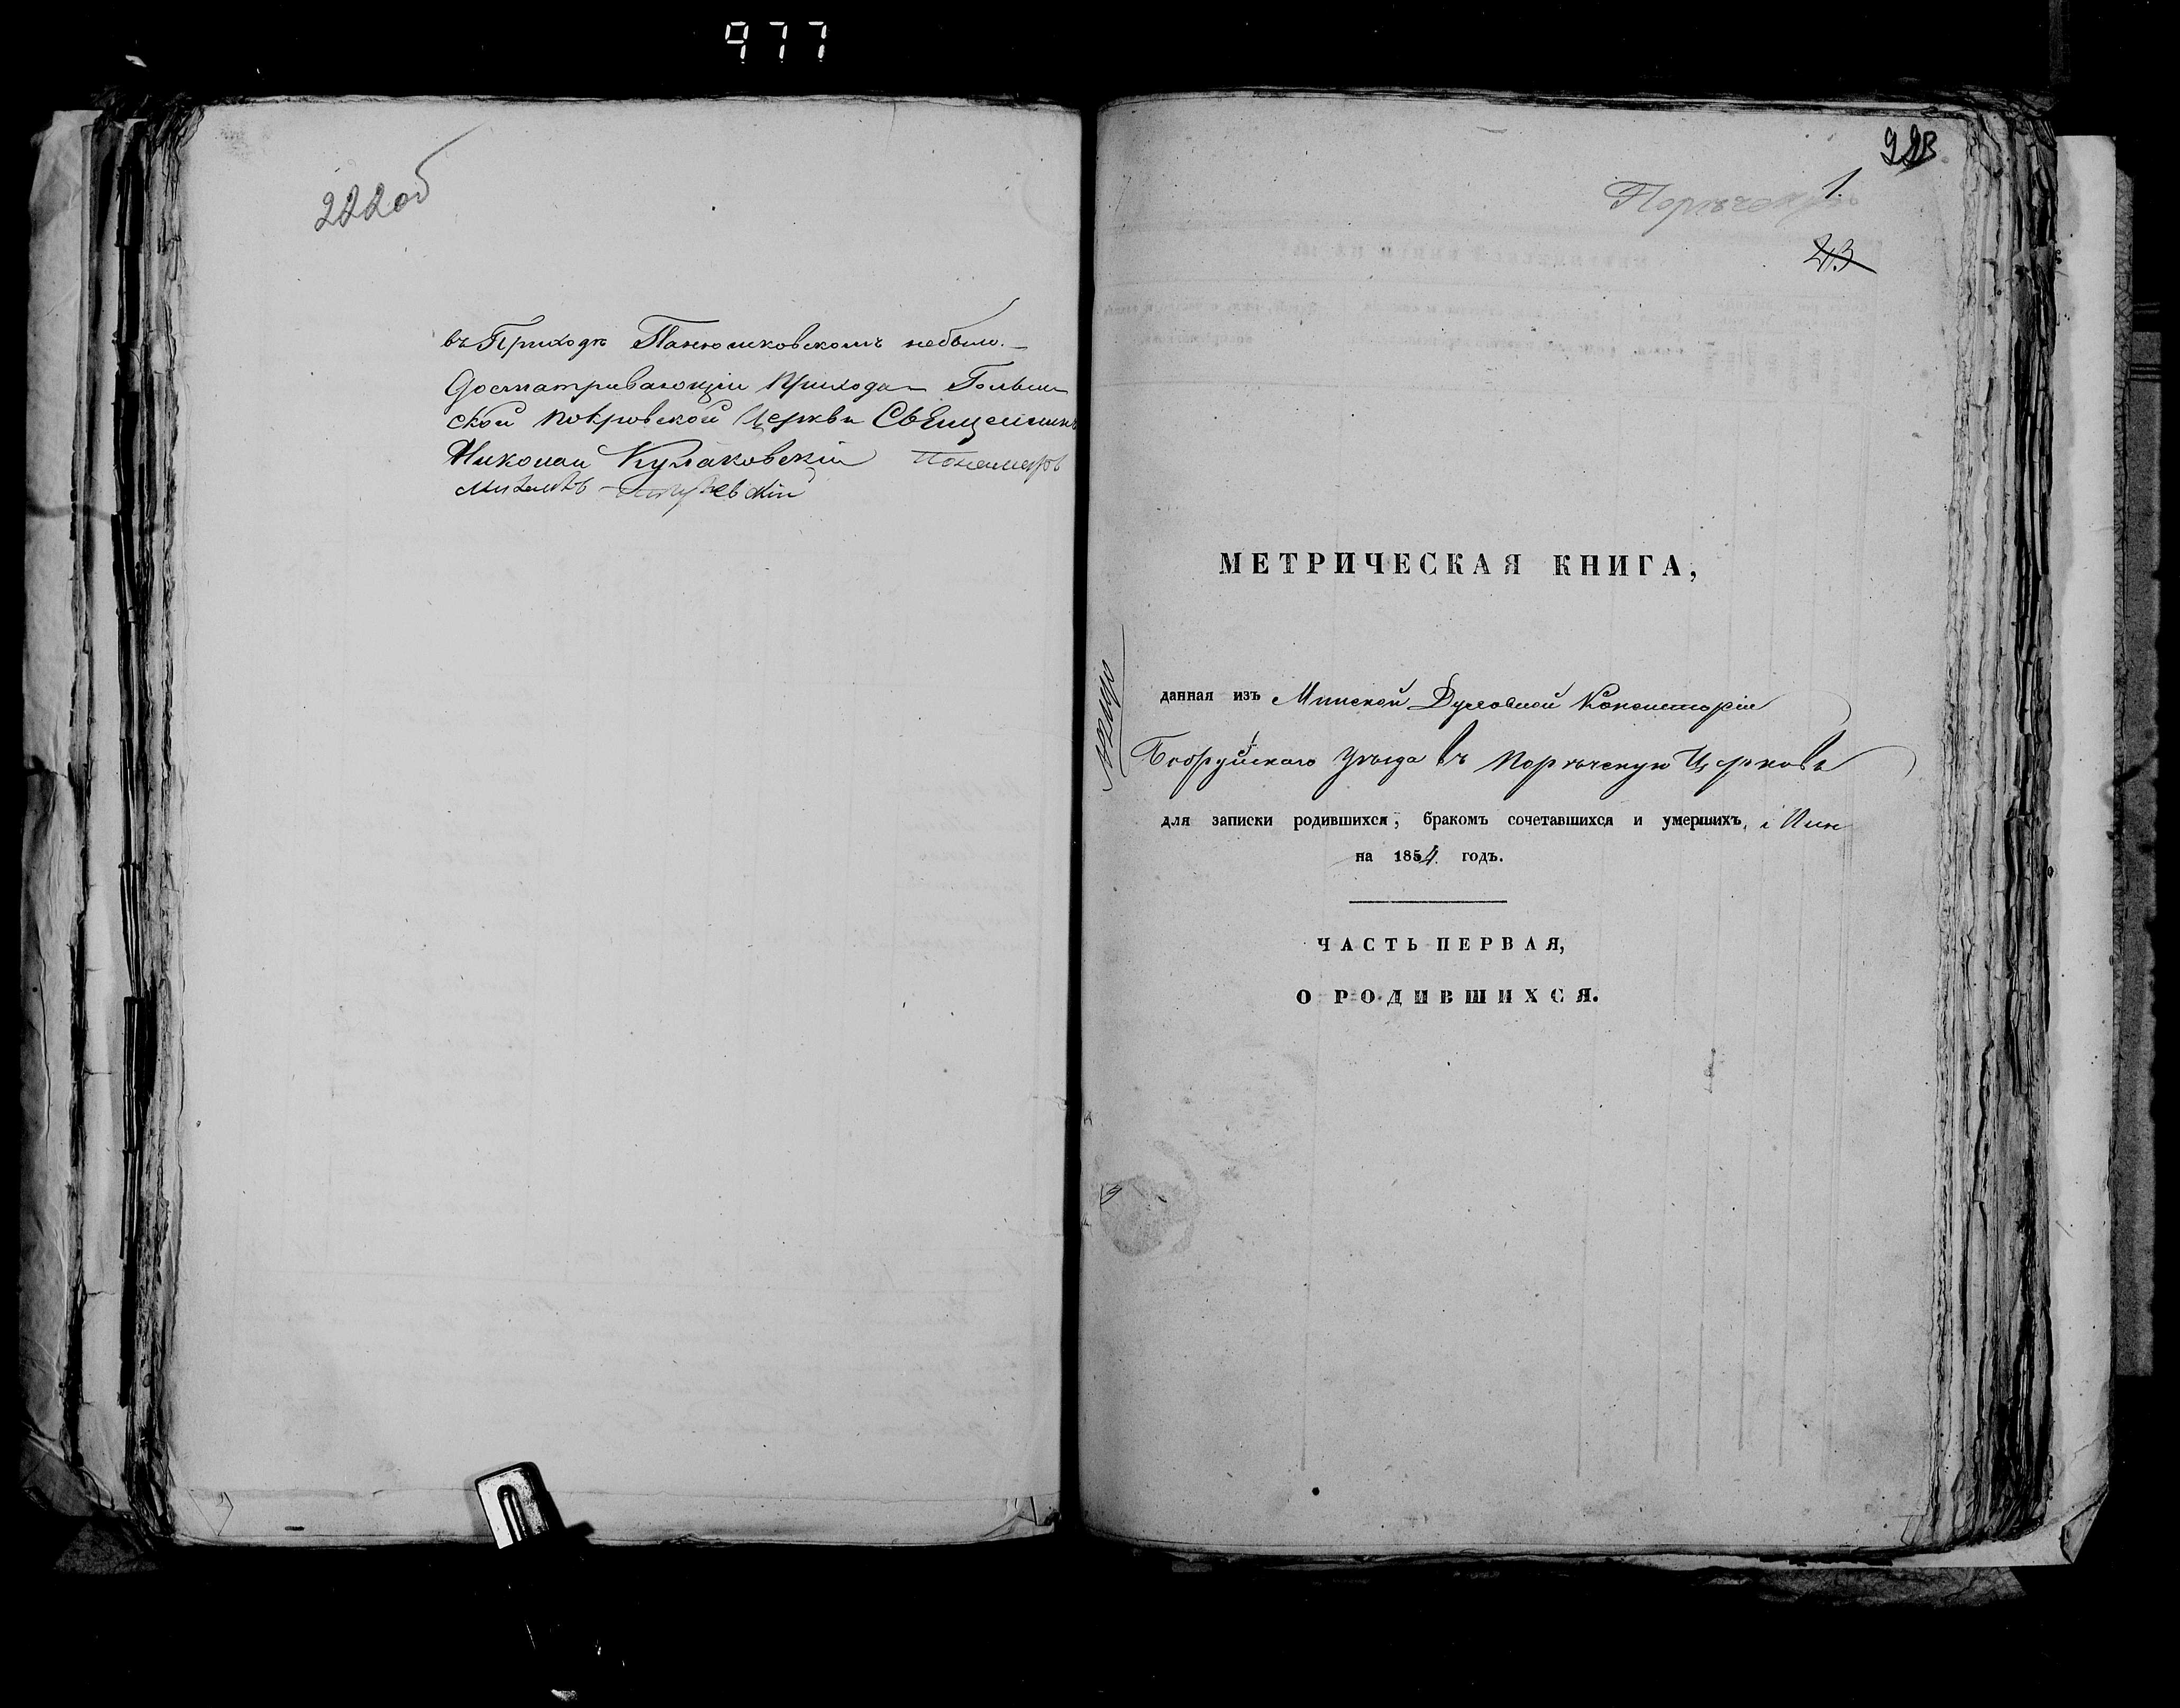 977
222об
въ Приходѣ Панюшковскомъ небыло.
Досматривающій Прихода Гольвы
ской Покровской Церкви Священникъ
Николай Кулаковскій Пономаръ
223
1.
Порѣчск
23
МЕТРИЧЕСКАЯ КНИГА,
данная изъ Минской Духовной Консисторіи
Бобруйскаго Уѣзда въ Порѣчскую Церковь
для записки родившихся, бракомъ сочетавшихся и умершихъ,
на 1854 годъ.
ЧАСТЬ ПЕРВАЯ,
О РОДИВШИХСЯ.